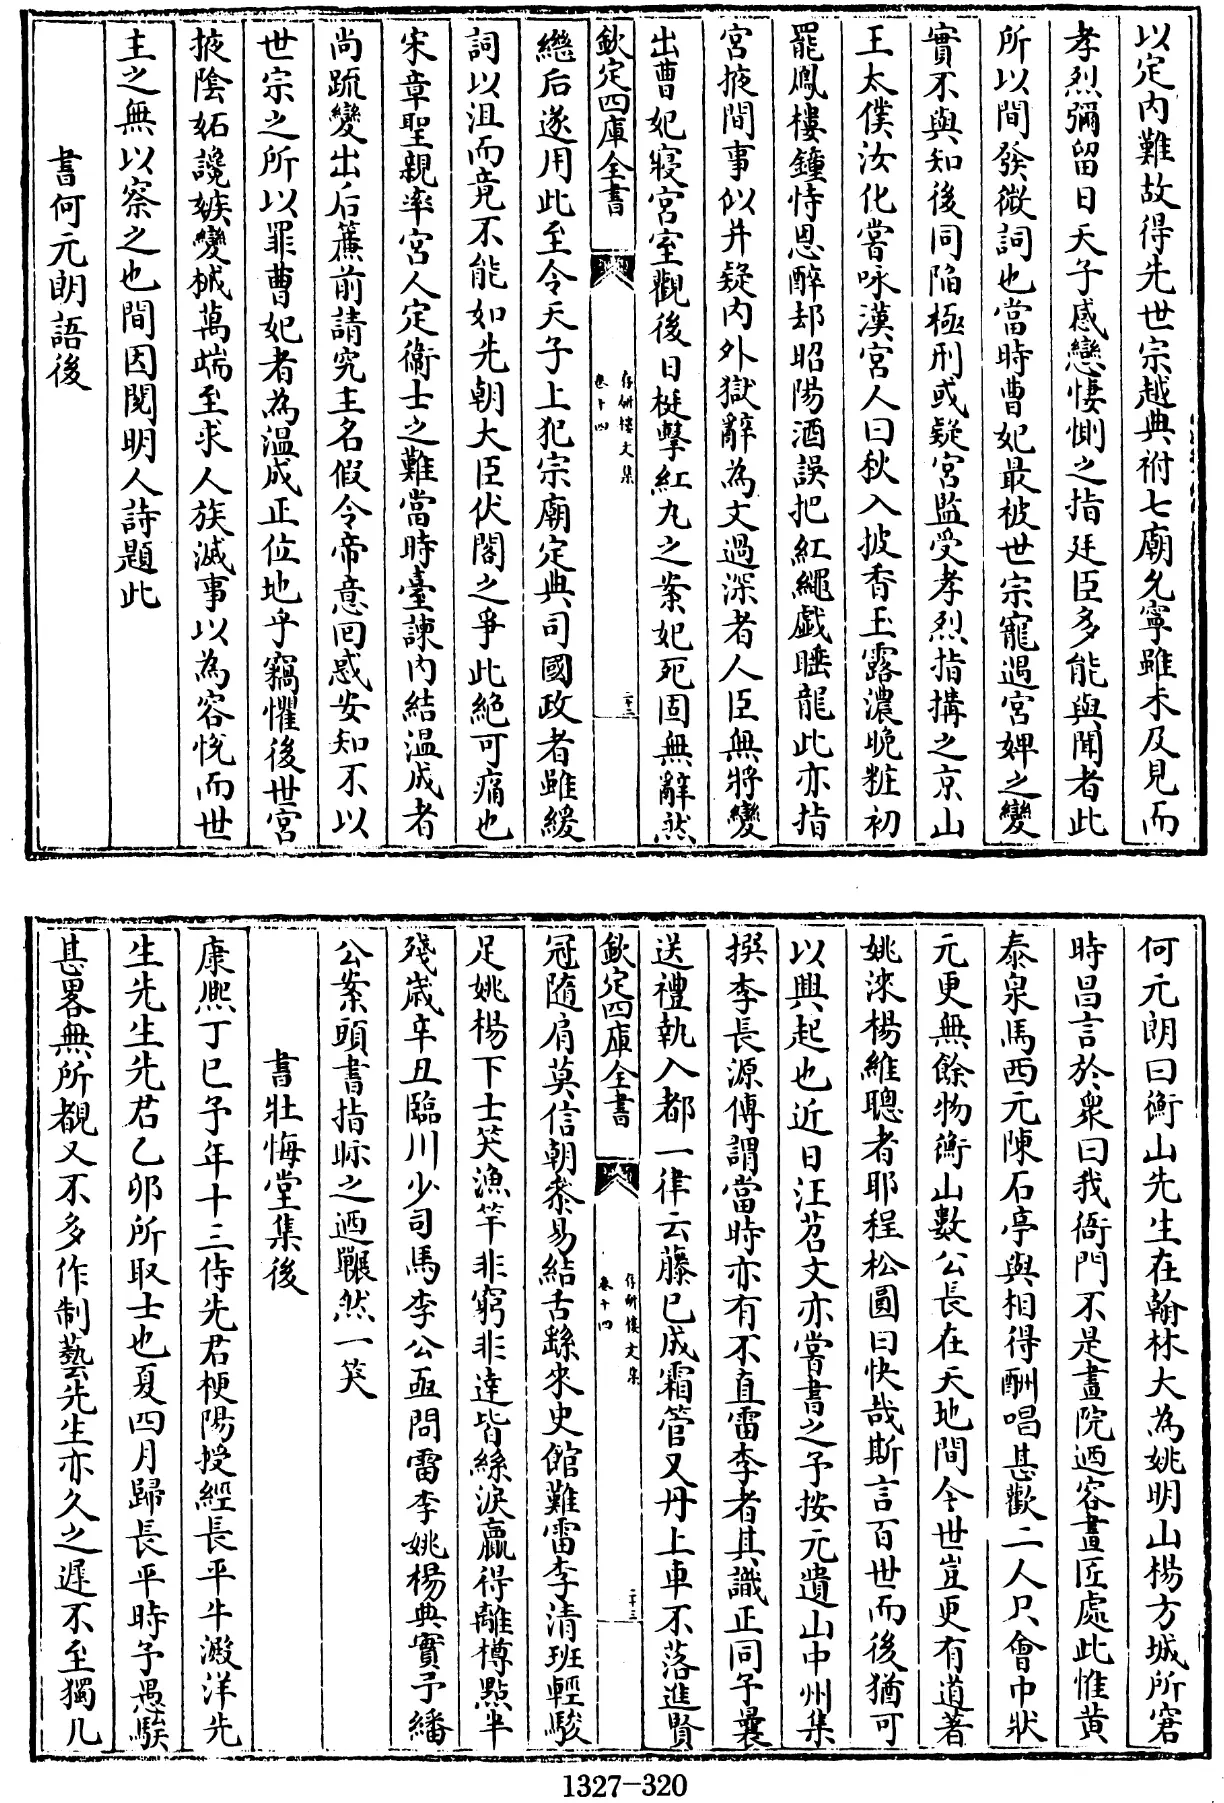 以定内難故得先世宗越典祔七廟允寧雖未及見而
孝烈彌留日天子感戀悽惻之指廷臣多能與聞者此
所以間發微詞也當時曹妃最被世宗寵遇宮婢之變
實不與知後同陷極刑或疑宮監受孝烈指搆之京山
王太僕汝化嘗咏漢宮人曰秋入披香玉露濃晩粧初
罷鳳樓鐘恃恩醉却昭陽酒誤把紅繩戯睡龍此亦指
宮掖間事似并疑内外獄辭為文過深者人臣無將變
出曹妃寢宮室觀後日梃擊紅丸之案妃死固無辭然
欽定四庫全書
存研樓文集
卷十四
二十二
繼后遂用此至令天子上犯宗廟定典司國政者雖緩
詞以沮而竟不能如先朝大臣伏閤之爭此絶可痛也
宋章聖親率宮人定衞士之難當時臺諫内結温成者
尚䟽變出后簾前請究主名假令帝意回惑安知不以
世宗之所以罪曹妃者為温成正位地乎竊懼後世宮
掖陰妬讒嫉變械萬端至求人族滅事以為容悅而世
主之無以察之也間因閲明人詩題此
書何元朗語後
何元朗曰衡山先生在翰林大為姚明山楊方城所窘
時昌言於衆曰我衙門不是畫院迺容畫匠處此惟黄
泰泉馬西元陳石亭與相得酬唱甚歡二人只會中狀
元更無餘物衡山數公長在天地間今世豈更有道著
姚淶楊維聰者耶程松圓曰快哉斯言百世而後猶可
以興起也近日汪苕文亦嘗書之予按元遺山中州集
撰李長源傳謂當時亦有不直雷李者其識正同予曩
送禮執入都一律云藤已成霜管又丹上車不落進賢
欽定四庫全書
存研樓文集
卷十四
二十三
冠隨肩莫信朝叅易結舌繇來史館難雷李清班輕駿
足姚楊下士笑漁竿非窮非達皆絲淚贏得離樽點半
殘歳辛丑臨川少司馬李公亟問雷李姚楊典實予繙
公案頭書指眎之迺囅然一笑
書壯悔堂集後
康熙丁巳予年十三侍先君梗陽授經長平牛澱洋先
生先生先君乙卯所取士也夏四月歸長平時予愚騃
甚畧無所覩又不多作制藝先生亦久之遲不至獨几
1327-320